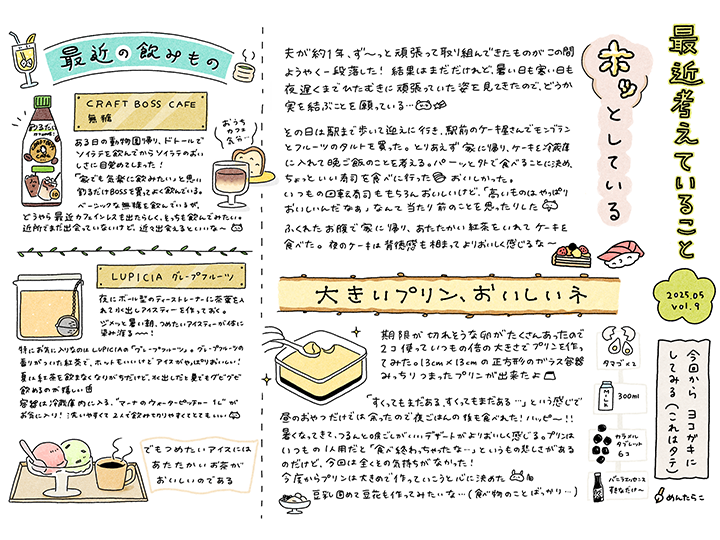 最近考えていること
2025.05
vol.9
今回から ヨコガキに
してみる(これはタテ)
めんたらこ
ホッとしている
夫が約1年、ず〜っと頑張って取り組んできたものがこの間
ようやく一段落した! 結果はまだだけれど、暑い日も寒い日も
夜遅くまでひたむきに頑張っていた姿を見てきたので、どうか
実を結ぶことを願っている…
その日は駅まで歩いて迎えに行き、駅前のケーキ屋さんでモンブラン
とフルーツのタルトを買った。とりあえず家に帰り、ケーキを冷蔵庫
に入れて晩ご飯のことを考える。パーッと外で食べることに決め、
ちょっといい寿司を食べに行った おいしかった。
いつもの回転寿司ももちろんおいしいけど、「高いものはやっぱり
おいしいんだなぁ」なんて当たり前のことを思ったりした
ふくれたお腹で家に帰り、あたたかい紅茶をいれてケーキを
食べた。夜のケーキは背徳感も相まってよりおいしく感じるな〜
大きいプリン、おいしいネ
期限が切れそうな卵がたくさんあったので
2コ使っていつもの倍の大きさでプリンを作っ
てみた。13cm×13cmの正方形のガラス容器
みっちりつまったプリンが出来たよ
「すくってもまだある、すくってもまだある…」という感じで
昼のおやつだけでは余ったので夜ごはんの後も食べれた!ハッピ〜!!
暑くなってきて、つるんとの喉ごしがいいデザートがよりおいしく感じる。プリンは
いつもの1人用だと「食べ終わっちゃったな…」といつも悲しさがある
のだけど、今回は全くその気持ちがなかった!
今度からプリンは大きめで作っていこうと心に決めた
豆乳固めて豆花も作ってみたいな…(食べ物のことばっかり…)
タマゴ×2
300ml
カラメル
タブレット
6コ
バニラエッセンス
すきなだけ〜
最近の飲みもの
CRAFT BOSS CAFE
無糖
おうち
カフェ
気分…
ある日の動物園帰り、ドトールで
ソイラテを飲んでからソイラテのおい
しさに目覚めてしまった!
「家でも気楽に飲みたいっ」と思い
割るだけBOSSを買ってよく飲んでいる。
ベーシックな無糖を飲んでいるが、
どうやら最近カフェインレスも出たらしく、そっちも飲んでみたい。
近所でまだ出会っていないけど、近々出会えるといいな〜
LUPICIA グレープフルーツ
夜にボール型のティーストレーナーに茶葉を入
れて水出しアイスティーを作っておく。
ジメッと暑い朝、つめたいアイスティーが体に
染み渡る〜〜!
特にお気に入りなのはLUPICIAの「グレープフルーツ」。グレープフルーツの
香りがついた紅茶で、ホットもいいけどアイスがやっぱりおいしい!
夏は紅茶を飲まなくなりがちだけど、水出しだと夏でもグビグビ
飲めるのが嬉しい
容器は冷蔵庫内に入る、"マーナのウォーターピッチャー 1L"が
お気に入り! 洗いやすくて2人で飲みきりやすくてとてもいい
でもつめたいアイスには
あたたかいお茶が
おいしいのである